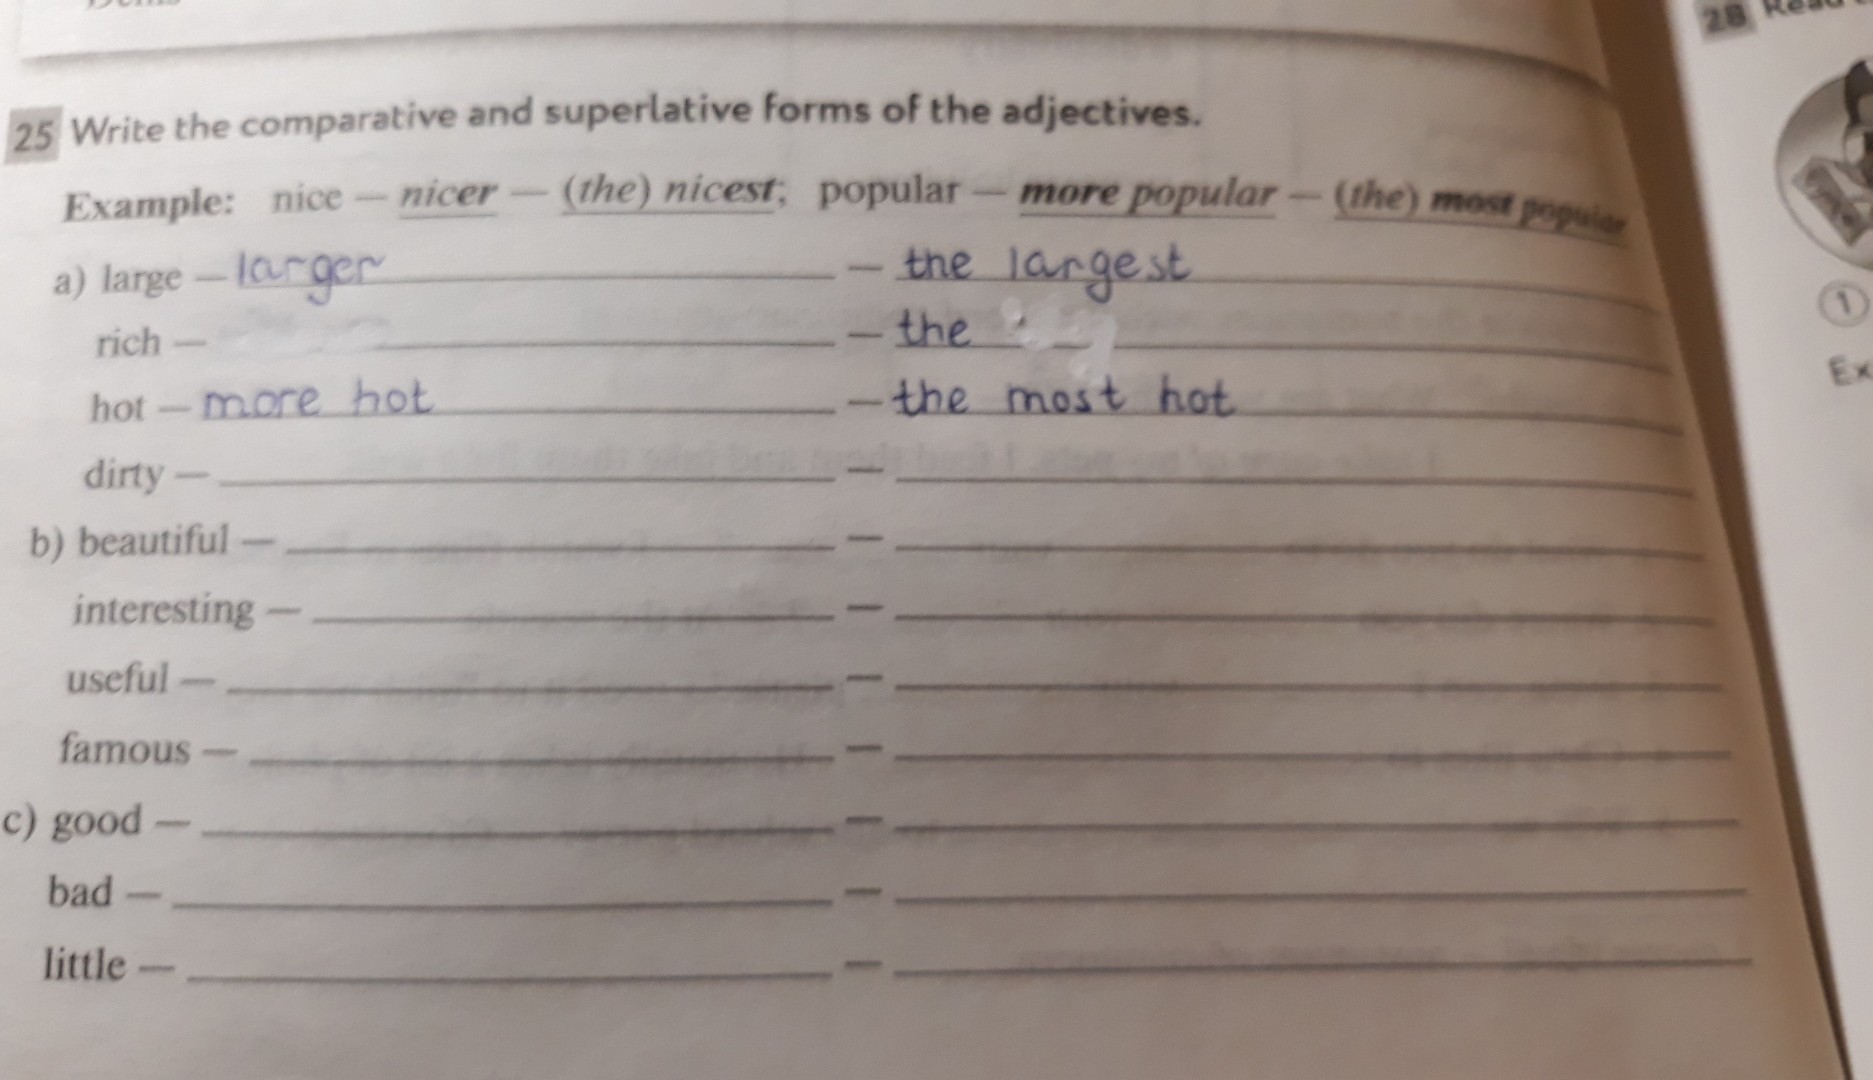 28
25 Write the comparative and superlative forms of the adjectives.
Example: nice — nicer — (the) nicest; popular — more popular — (the) most popular
a) large — larger — the largest
1
rich — — the
Ex
hot — more hot — the most hot
dirty — —
b) beautiful — —
interesting — —
useful — —
famous — —
c) good — —
bad — —
little — —